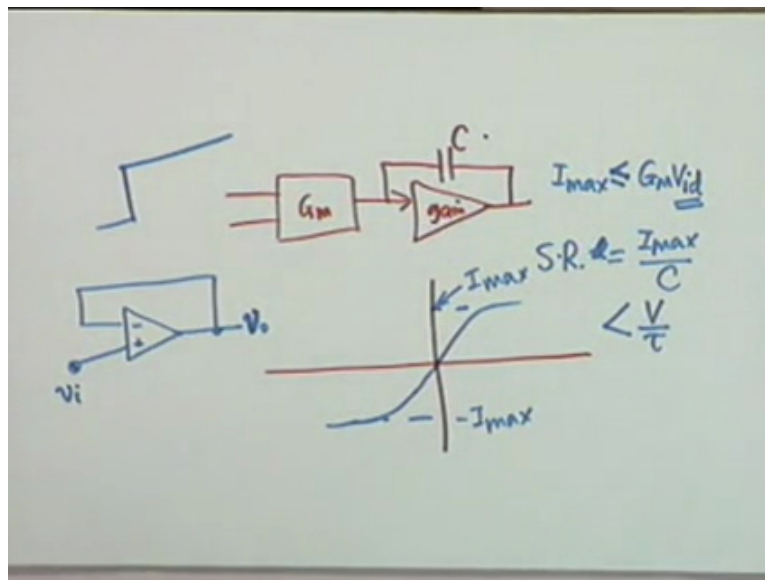 C
Gm
gain
Imax ≤ GmVid
S.R. = Imax / C
< V / τ
Imax
-Imax
-
+
Vo
Vi